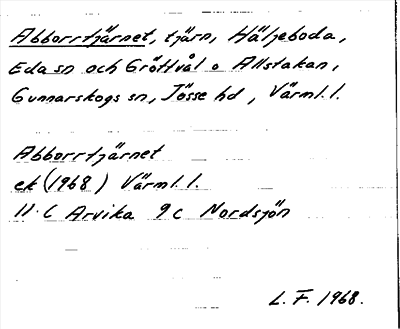 Abborrtjärnet, tjärn, Häljeboda,
Eda sn och Gröttvål o Allstakan,
Gunnarskogs sn, Jösse hd, Värml. l.
Abborrtjärnet
ek (1968) Värml. l.
11 C Arvika 9 c Nordsjön
L. F. 1968.